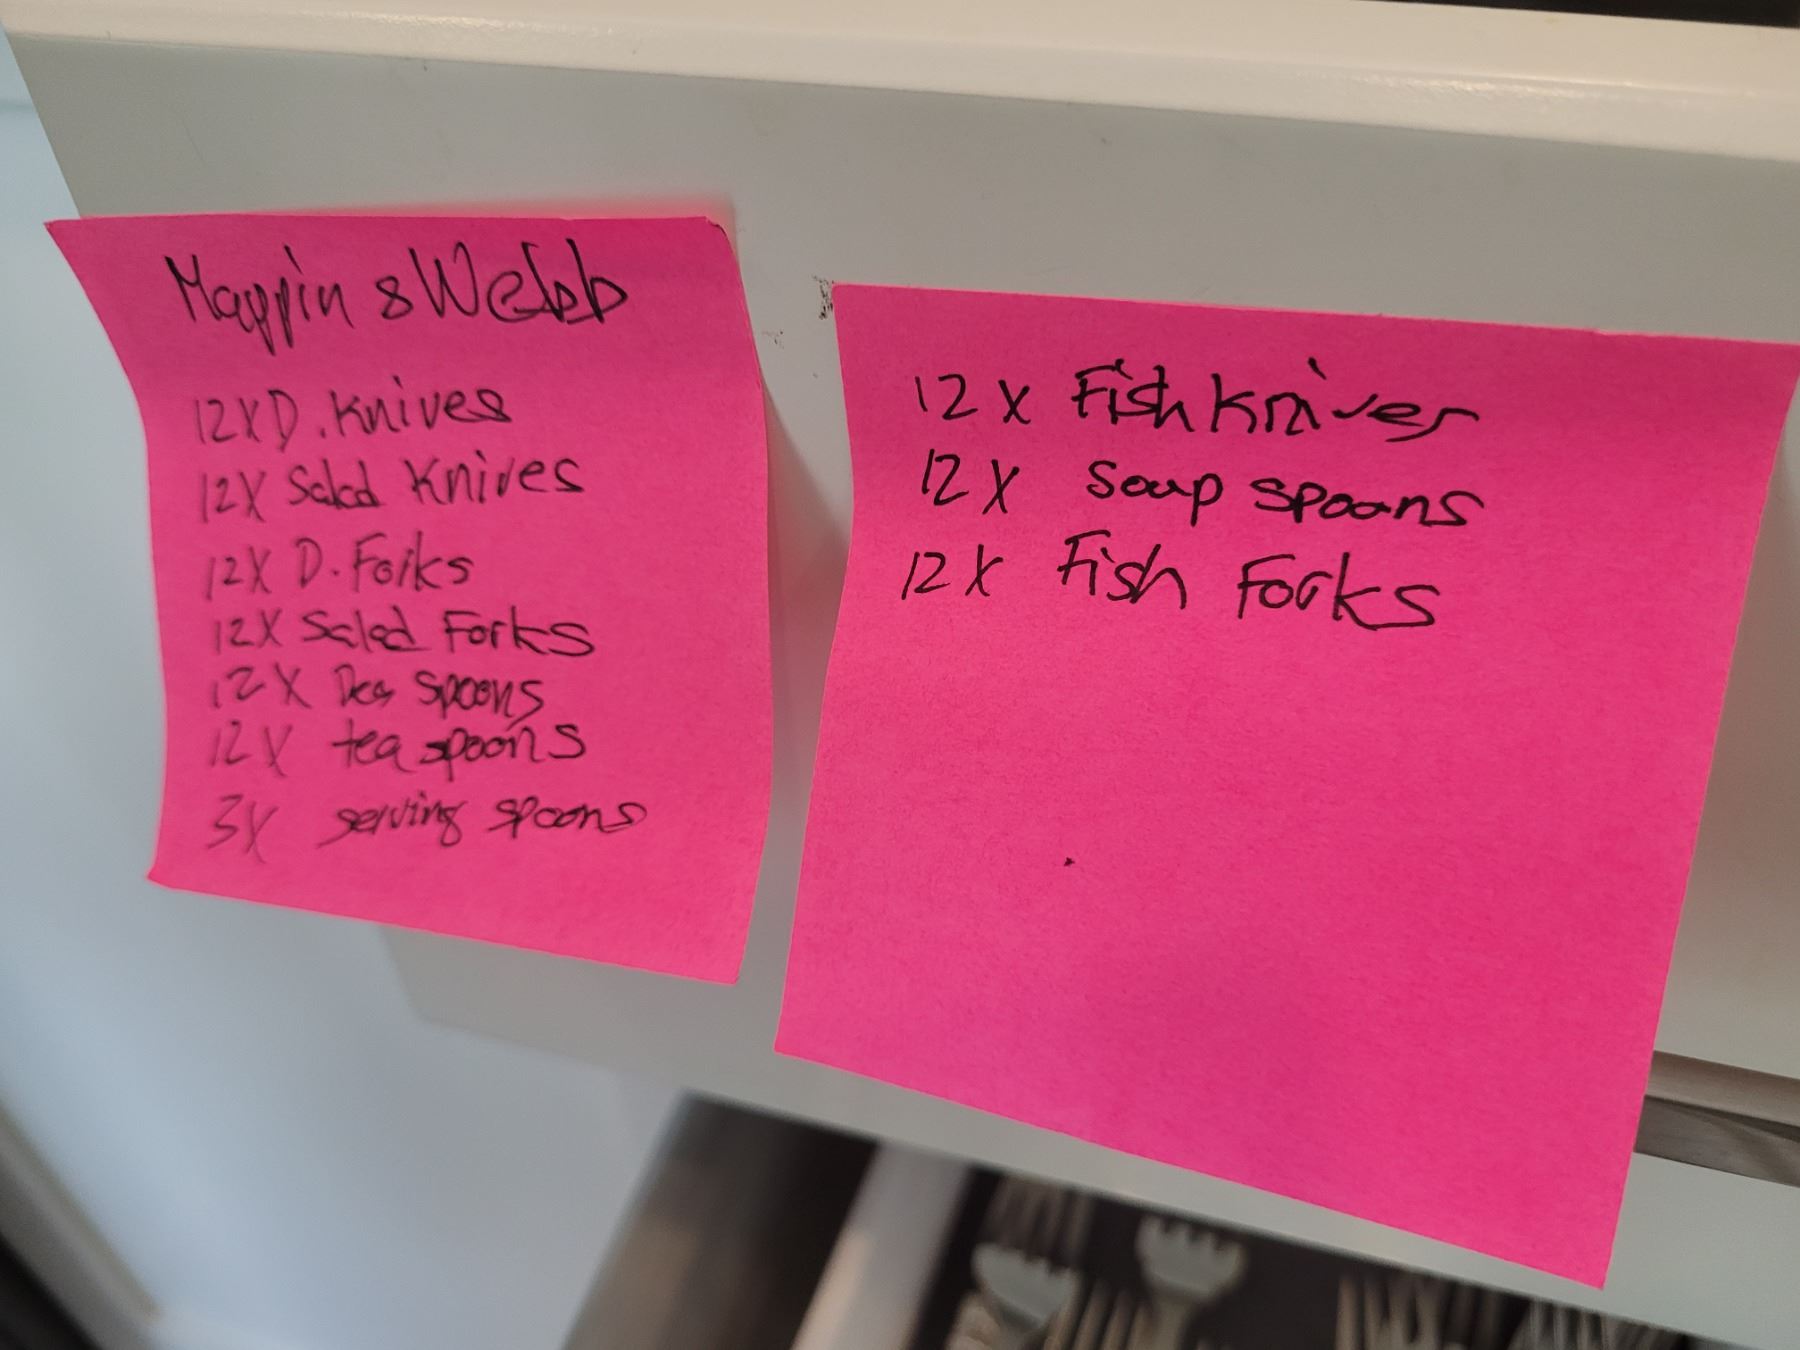 Mappin & Webb
12X D. Knives
12X Salad Knives
12X D. Forks
12X Salad Forks
12X Des spoons
12X tea spoons
3X serving spoons
12X Fish Knives
12X Soup spoons
12X Fish Forks